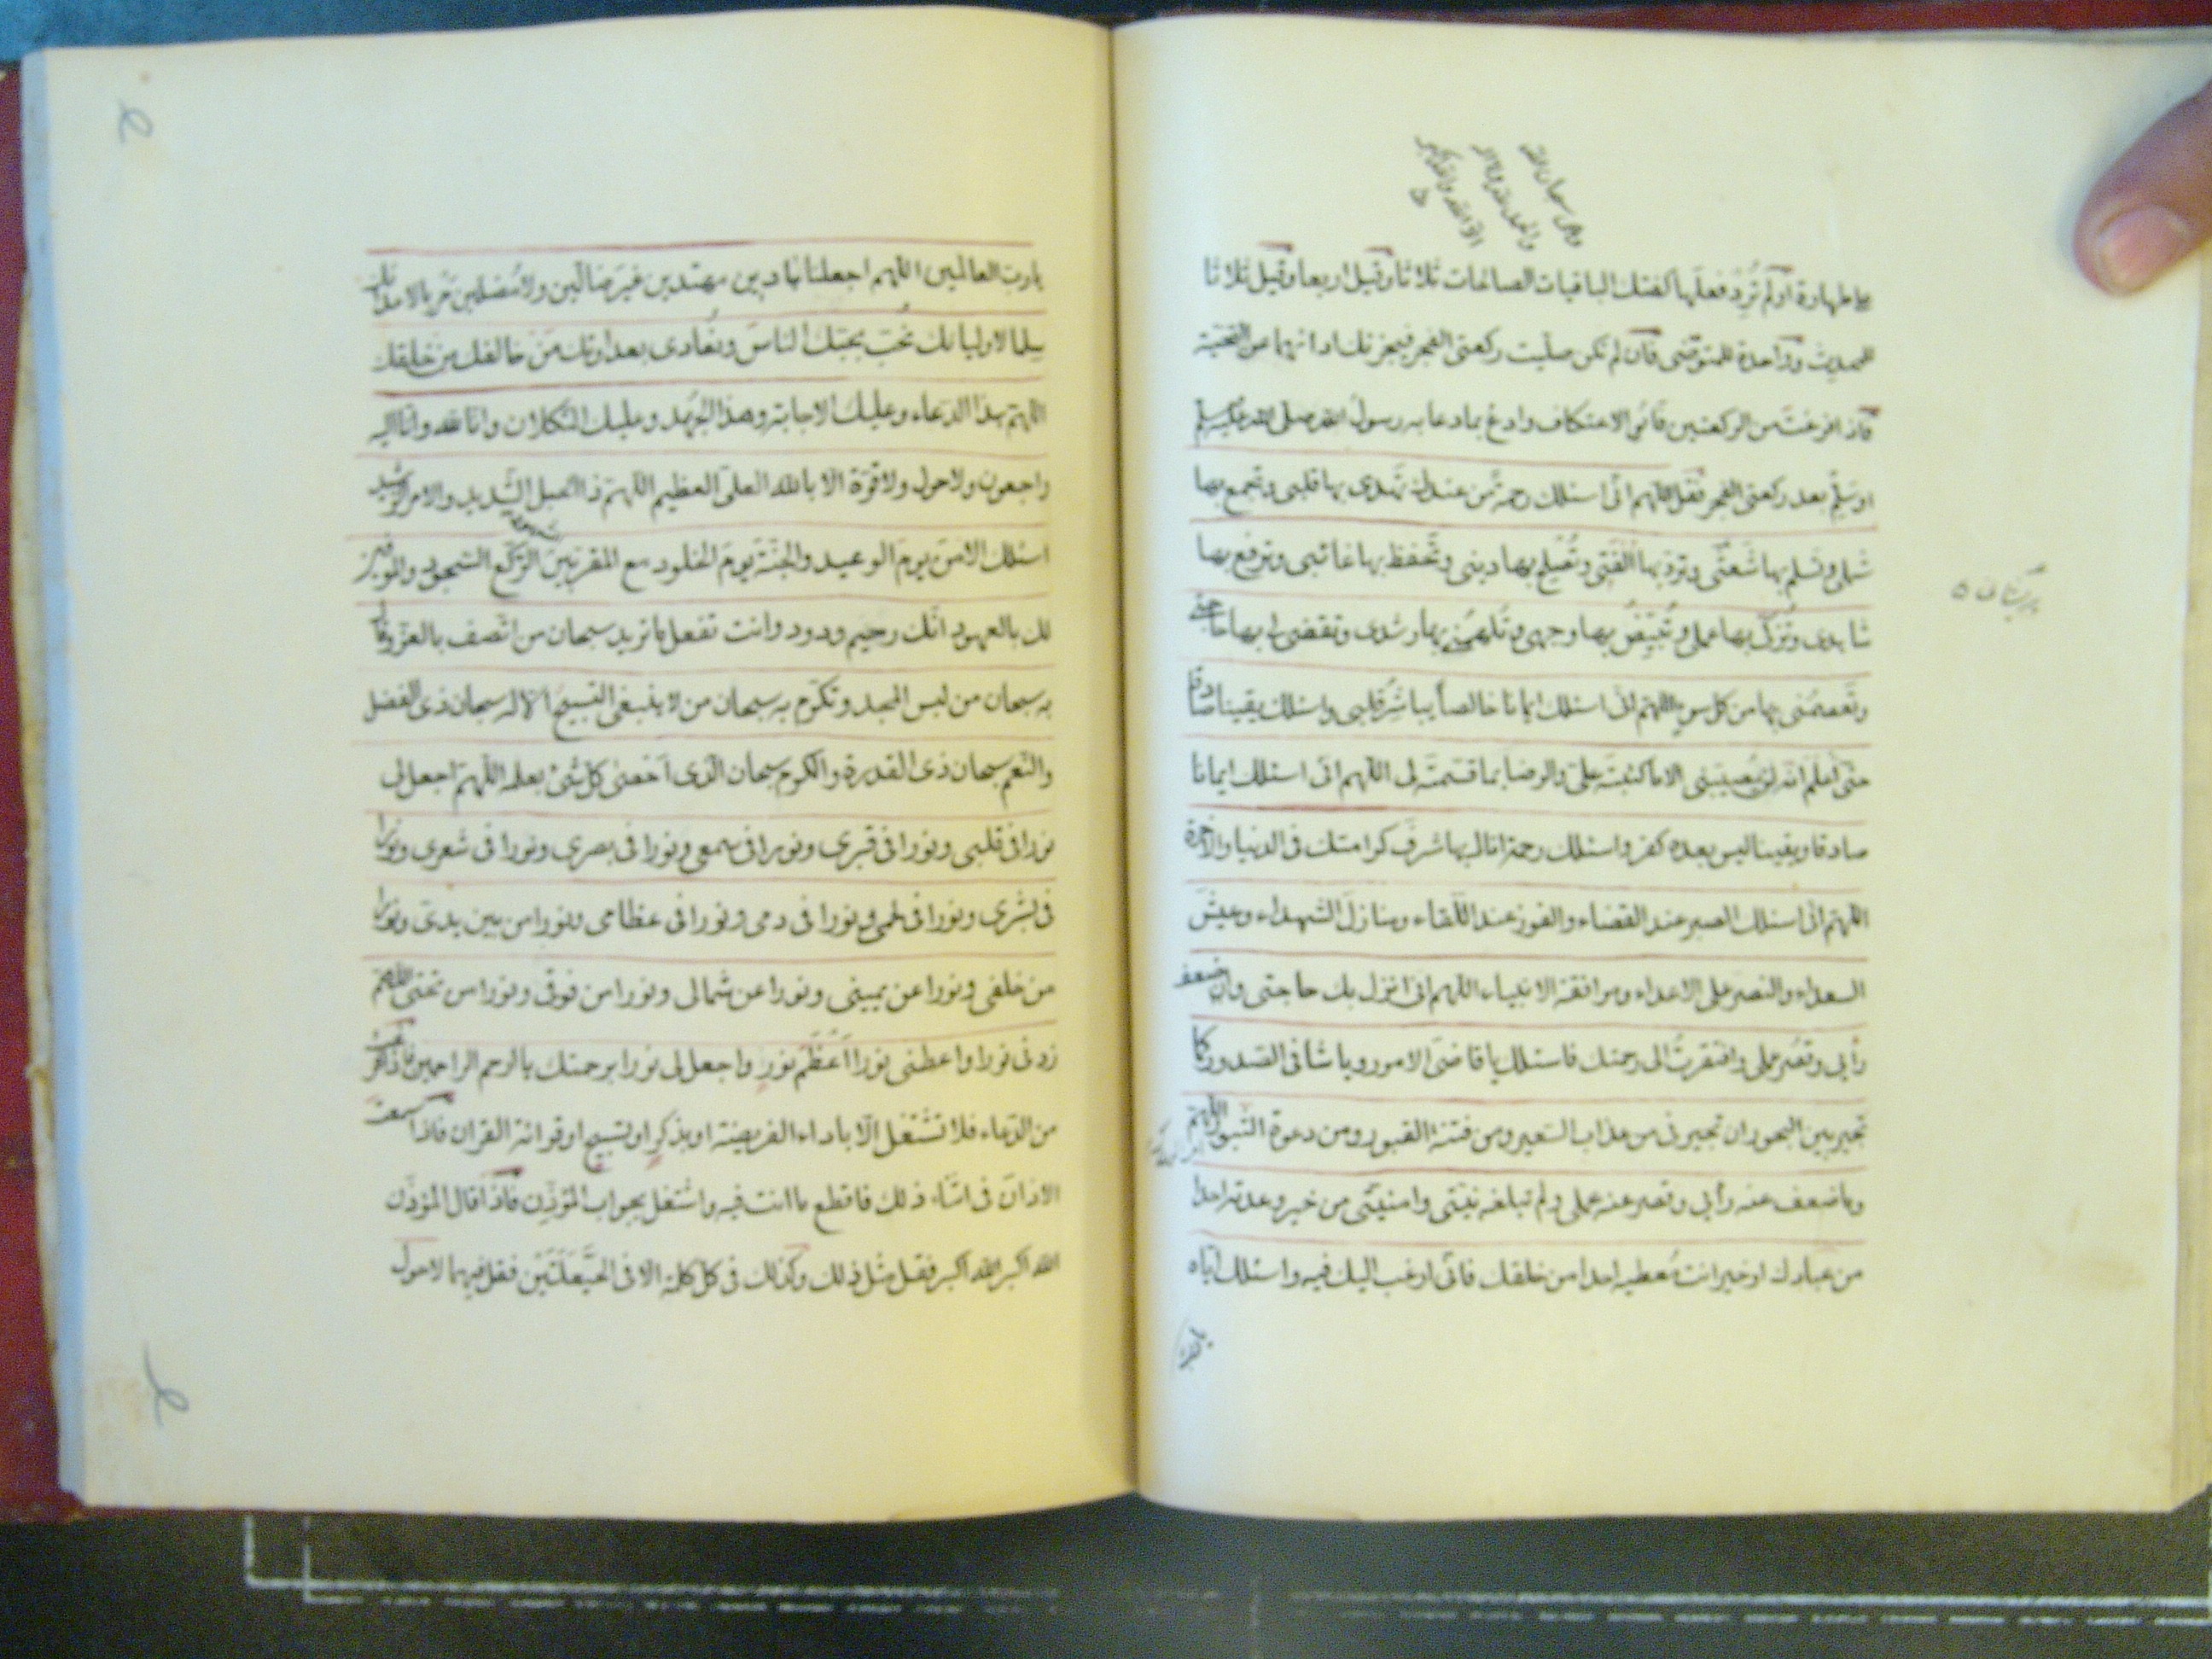 وهى سبحان الله
والحمد لله ولا اله
الا الله والله اكبر
على طهارة او لم تُرِد فعلَها كفتك الباقيات الصالحات ثلاثا وقيل اربعا وقيل ثلاثا
للمحدث وواحدة للمتوضى فان لم تكن صليت ركعتى الفجر فيجزئك اداؤهما عن التحية
فاذا فرغتَ من الركعتين فانو الاعتكاف وادع بما دعا به رسول الله صلى الله عليه وسلم
وسلم بعد ركعتى الفجر فقل اللهم انى اسئلك رحمة من عندك تهدى بها قلبى وتجمع بها
شملى وتلم بها شَعَثى وترد بها اُلفَتى وتُصلح بها دينى وتحفظ بها غائبى وترفع بها
شاهدى وتُزكى بها عملى وتُبيّضُ بها وجهى وتُلهِمُنى بها رشدى وتقضى لى بها حاجتى
وتَعصِمُنى بها من كل سوء اللهم انى اسئلك ايمانا خالصاً يباشِرُ قلبى واسئلك يقينا صادقا
حتى اعلم انه لن يُصيبنى الا ما كتبتَه علىّ والرضا بما قسمتَه لى اللهم انى اسئلك ايمانا
صادقا ويقينا ليس بعده كفر واسئلك رحمة انال بها شرفَ كرامتك فى الدنيا والاخرة
اللهم انى اسئلك الصبر عند القضاء والفوز عند اللقاء ومنازلَ الشهداء وعيشَ
السعداء والنصرَ على الاعداء ومرافقة الانبياء اللهم انى انزل بك حاجتى وان ضعف
رأيى وقصُر عملى وافتقرتُ الى رحمتك فاسئلك يا قاضىَ الامور ويا شافى الصدور كما
تجير بين البحور ان تجيرنى من عذاب السعير ومن فتنة القبور ومن دعوة الثبور اللهم
وما ضعف عنه رأيى وقصر عنه عملى ولم تبلغه نيّتى وامنيّتى من خير وعدته احدا
من عبادك او خير انت مُعطيه احدا من خلقك فانى ارغب اليك فيه واسئلك اياه
يا رب العالمين اللهم اجعلنا هادين مهتدين غيرَ ضالّين ولا مُضلين حربا لاعدائك
سِلما لاوليائك نُحِبّ بحبّك الناسَ ونُعادى بعداوتك مَن خالفك من خلقك
اللهمّ هذا الدعاء وعليك الاجابة وهذا الجُهد وعليك التكلان وانا لله وانا اليه
راجعون ولا حول ولا قوّة الا بالله العلى العظيم اللهمّ ذا الحبل الشديد والامر الرشيد
اسئلك الامنَ يومَ الوعيد والجنّةَ يومَ الخلود مع المقربين الشهود الرُكّع السجود والموفين
لك بالعهود انّك رحيم ودود وانت تفعل ما تريد سبحان من اتّصف بالعزّ وقال
به سبحان من لبس المجد وتكرّم به سبحان من لا ينبغى التسبيحُ الا له سبحان ذى الفضل
والنعم سبحان ذى القدرة والكرم سبحان الّذى احصى كل شئ بعلمه اللهمّ اجعل لى
نورا فى قلبى ونورا فى قبرى ونورا فى سمعى ونورا فى بصرى ونورا فى شعرى ونورا
فى بشرى ونورا فى لحمى ونورا فى دمى ونورا فى عظامى ونورا من بين يدىّ ونورا
من خلفى ونورا عن يمينى ونورا عن شمالى ونورا من فوقى ونورا من تحتى اللهمّ
زدنى نورا واعطنى نورا اَعظَم نورٍ واجعل لى نورا برحمتك يا ارحم الراحمين فاذا فرغت
من الدّعاء فلا تشتغل الّا باداء الفريضة او بذكرٍ او تسبيح او قرائة القران فاذا سمعت
الاذانَ فى اثناء ذلك فاقطع ما انت فيه واشتغل بجواب المؤذّن فاذا قال المؤذّن
الله اكبر الله اكبر فقل مثل ذلك وكذلك فى كل كلمة الا فى الحَيعَلَتَين فقل فيهما لا حول